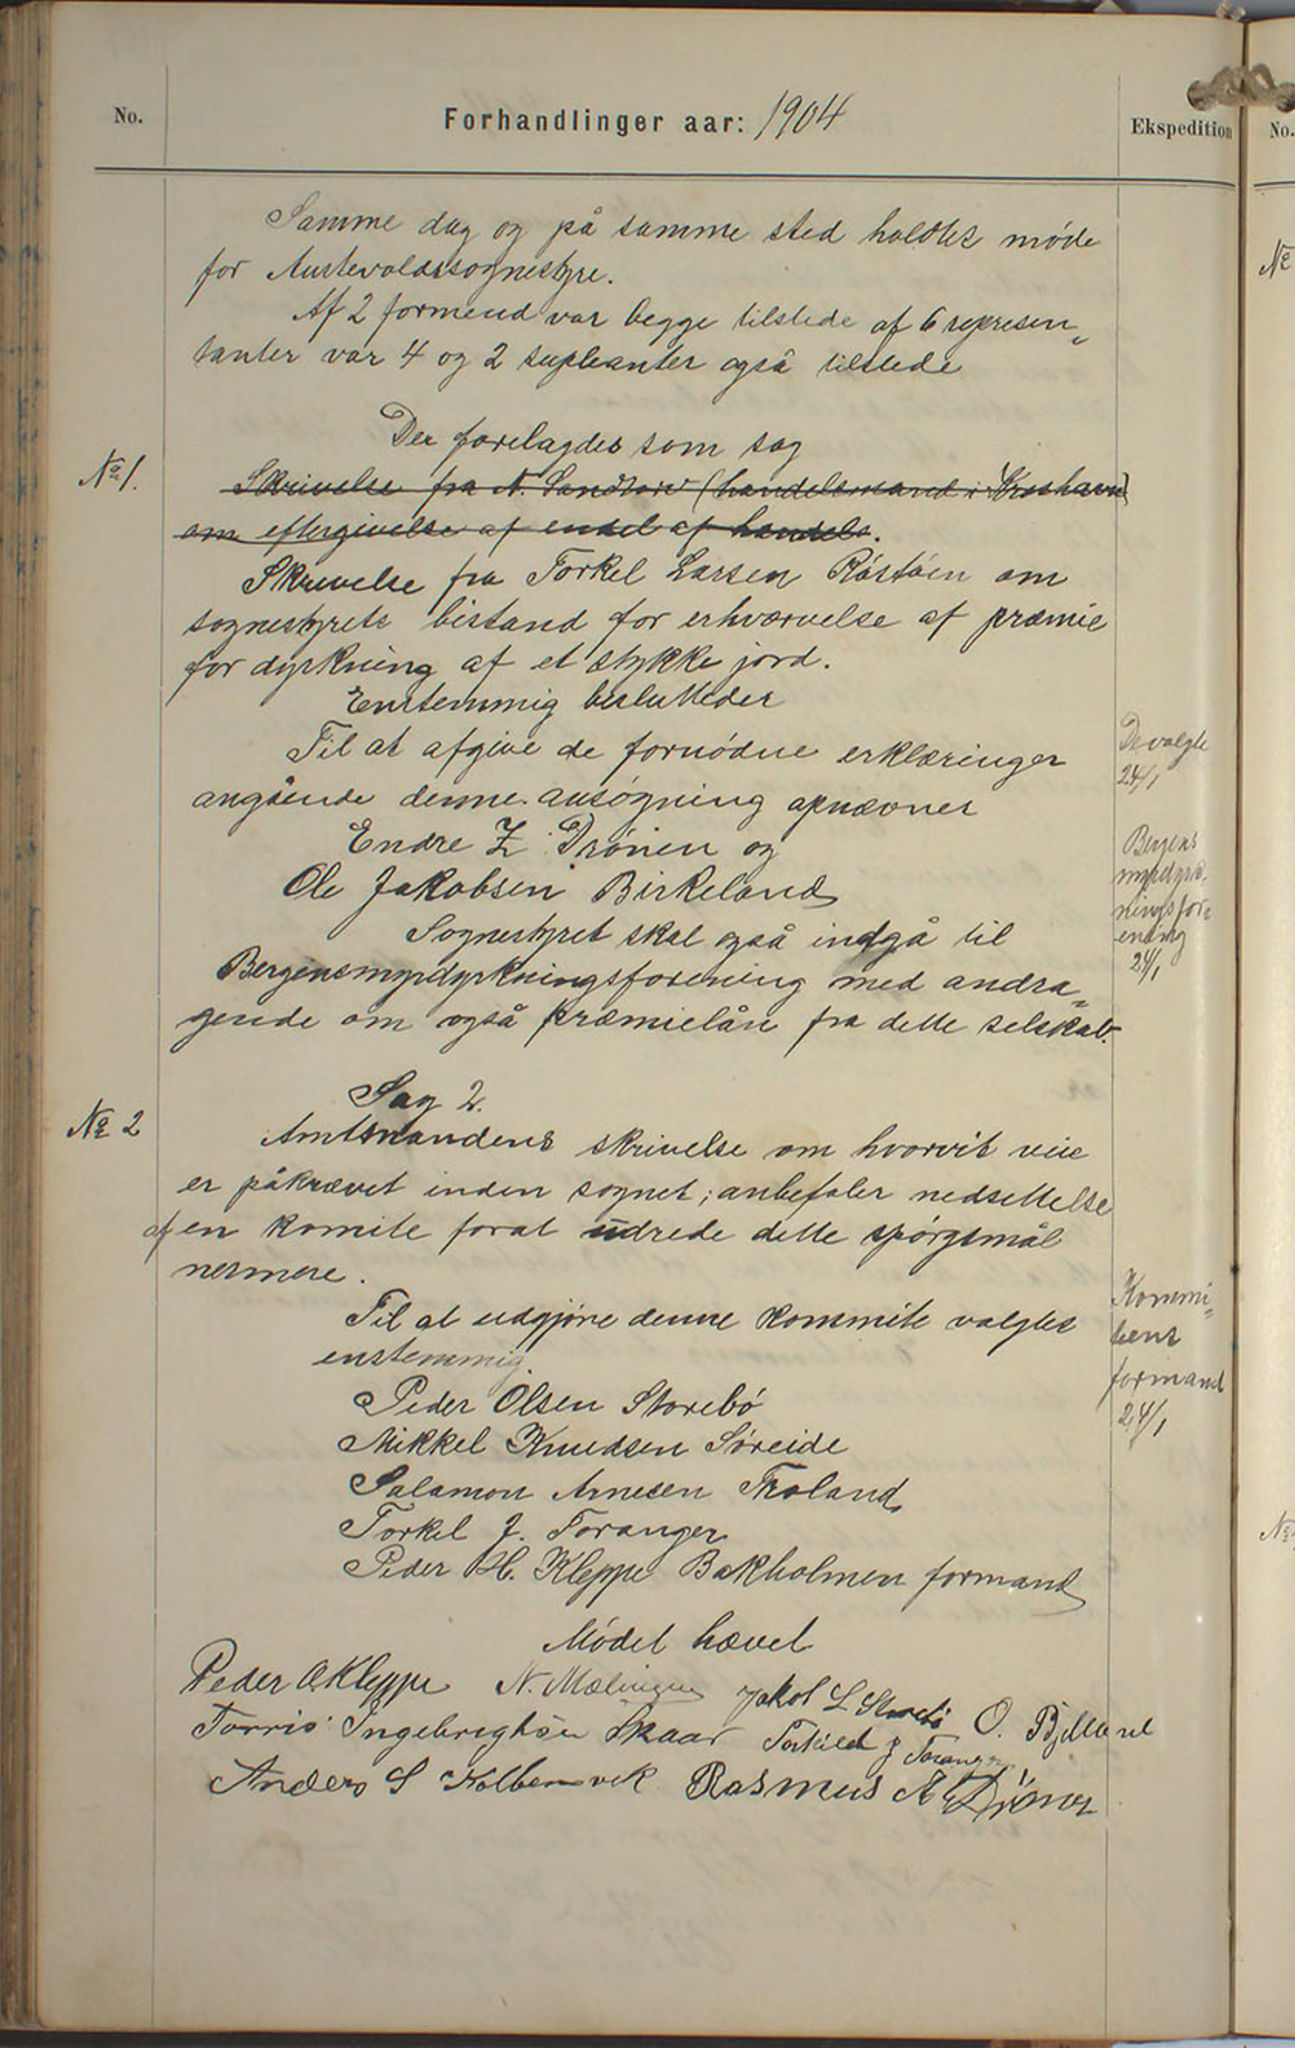 No.
Forhandlinger aar: 1904
Ekspedition
No.
Samme dag og på samme sted holdtes møde
for Austevoldssognestyre.
Af 2 formend var begge tilstede af 6 represen„
tanter var 4 og 2 supleanter også tilstede
Der forelagdes som sag
No 1.
Skrivelse fra N. Sandtorv (handelsmand i Kreshavn)
om eftergivelse af endel af handels.
Skrivelse fra Torkel Larsen Røstøen om
sognestyrets bistand for erhværvelse af præmie
for dyrkning af et stykke jord.
Enstemmig besluttedes
Til at afgive de fornødne erklæringer
angående denne ansøgning opnævnes
Endre Z. Drønen og
Ole Jakobsen Birkeland
De valgte
24/1
Sognestyret skal også indgå til
Bergensmyrdyrkningsforening med andra„
gende om også præmielån fra dette selskab.
Bergens
myrdyrk„
ningsfor„
ening
24/1
Sag 2.
No 2
Amtmandens skrivelse om hvorvit veie
er påkrævet inden sognet; anbefaler nedsettelse
af en komite forat udrede dette spørgsmål
nermere.
Til at udgjøre denne kommite valgtes
enstemmig.
Peder Olsen Storebø
Mikkel Knudsen Søreide
Salamon Arnesen Troland
Torkel J. Toranger
Peder H. Kleppe Bakholmen formand
Kommi„
teens
formand
24/1
Mødet hævet
Peder O Kleppe N. Mælingen Jakob L Storebø O. Bjelland
Torris Ingebrigtsen Skaar Torkild J Toranger
Anders S Kolbensvik Rasmus A Drönen
No